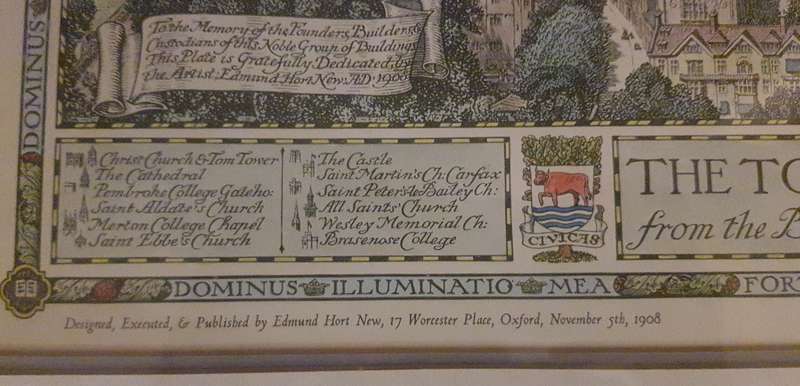 DOMINUS
To the Memory of the Founders, Builders &
Custodians of this Noble Group of Buildings
This Plate is Gratefully Dedicated by
the Artist: Edmund Hort New: A.D. 1908
Christ Church & Tom Tower
The Cathedral
Pembroke College Gateho:
Saint Aldate's Church
Merton College Chapel
Saint Ebbe's Church
The Castle
Saint Martin's Ch: Carfax
Saint Peter's le Bailey Ch:
All Saints' Church
Wesley Memorial Ch:
Brasenose College
CIVITAS
THE TO
from the B
DOMINUS ILLUMINATIO MEA FORT
Designed, Executed, & Published by Edmund Hort New, 17 Worcester Place, Oxford, November 5th, 1908